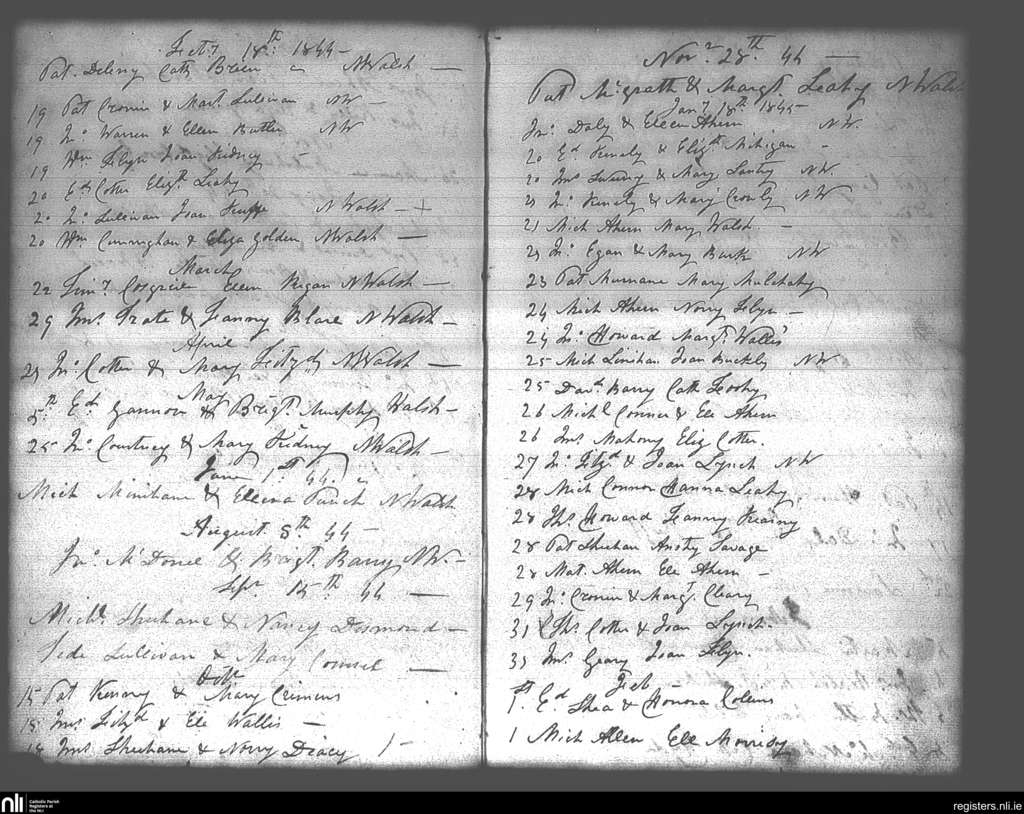 Feb.y 18th 1844 -
Pat. Cath Breen NWalsh -
19 Pat Cronin & Mart. Sullivan NW -
19 Jno. Warren & Ellen Butler NW
19 Wm Joan Kidney -
20 Ed. Cotter Elizth. Leahy
20 Jno. Sullivan Joan NWalsh - +
20 Wm Cunnighan & Eliza Golden NWalsh -
March
22 Cosgrive Ellen NWalsh -
29 Jms. & Jeanny Blare NWalsh -
April
29 Jno. Cotter & Mary Fitzgd NWalsh -
May
5th Ed. Gannon & Breigt. Murphy Walsh -
25 Jno. Courtney & Mary Kidney NWalsh -
June 1st 44.
Mich Minihane & Ellena NWalsh
August 8th 44 -
Jno. McDonel & Breigt. Barry NW. -
Sepr. 15th 44 -
Michl. Sheehane & Nancy Desmond -
Jede Sullivan & Mary Counsel -
Octr
15 Pat Kenny & Mary Crimens
18 Jms Fitzd & Ele Wallis -
18 Jms Sheehane & Norry Dracy 1 -
Novr. 28th. 44 -
Pat McGrath & Margt. Leahy NWalsh
Jany 18th 1845
Jno. Daly & Elleen Ahern NW.
20 Ed. Kenely & Elizth Mihigan -
20 Jms Sweeny & Mary Santry NW.
21 Jno. Kenely & Mary Crowly NW
21 Mich Ahern Mary Walsh -
21 Jno. Egan & Mary Burk NW
23 Pat Murnane Mary Mulchahy
24 Mich Ahern Norry
24 Jno. Howard Margt. Wallis
25 Mich Linihan Joan Buckly NW
25 Davd. Barry Cath
26 Michl Connor & Ele Ahern
26 Jms. Mahony Eliz Cotter.
27 Jno. Fitzd & Joan Lynch NW
28 Mich Connor Hanora Leahy
28 Ths. Howard Jeanny Kearny
28 Pat Sheehan Ansty Savage
28 Mat. Ahern Ele Ahern -
29 Jno. Cronin & Margt. Cleary
31 Ths Cotter & Joan Lynch.
31 Jms. Geary Joan
Feb
1st. Ed Shea & Honora Collens
1 Mich Allen Ele
nli
Catholic Parish
Registers at
the NLI
registers.nli.ie